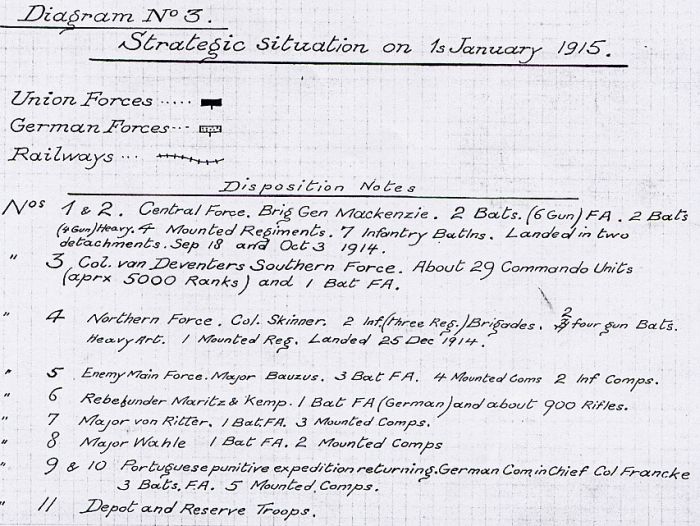 Diagram No 3.
Strategic situation on 1s January 1915.
Union Forces .....
German Forces...
Railways ...
Disposition Notes
Nos 1 & 2. Central Force. Brig Gen Mackenzie. 2 Bats. (6 Gun) FA. 2 Bats
(4 Gun) Heavy. 4 Mounted Regiments. 7 Infantry Batlns. Landed in two
detachments. Sep 18 and Oct 3 1914.
" 3 Col. van Deventers Southern Force. About 29 Commando Units
(aprx 5000 Ranks) and 1 Bat FA.
" 4 Northern Force. Col. Skinner. 2 Inf. (three Reg.) Brigades. 2 four gun Bats.
Heavy Art. 1 Mounted Reg. Landed 25 Dec 1914.
" 5 Enemy Main Force. Major Bauzus. 3 Bat FA. 4 Mounted Coms 2 Inf Comps.
" 6 Rebefunder Maritz & Kemp. 1 Bat FA (German) and about 900 Rifles.
" 7 Major von Ritter. 1 Bat.FA. 3 Mounted Comps.
" 8 Major Wahle 1 Bat FA. 2 Mounted Comps
" 9 & 10 Portuguese punitive expedition returning. German Com in Chief Col Francke
3 Bats. F.A. 5 Mounted Comps.
" 11 Depot and Reserve Troops.